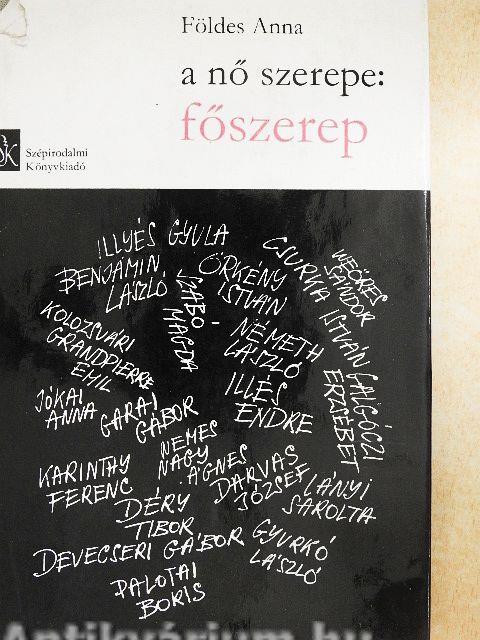 Földes Anna
a nő szerepe:
főszerep
SK
Szépirodalmi
Könyvkiadó
ILLYÉS GYULA
BENJÁMIN
LÁSZLÓ
ÖRKÉNY
ISTVÁN
CSURKA ISTVÁN
WEÖRES
SÁNDOR
SZABÓ
MAGDA
KOLOZSVÁRI
GRANDPIERRE
EMIL
NÉMETH
LÁSZLÓ
GALGÓCZI
ERZSÉBET
JÓKAI
ANNA
GARAI
GÁBOR
ILLÉS
ENDRE
KARINTHY
FERENC
NEMES
NAGY
ÁGNES
DARVAS
JÓZSEF
LÁNYI
SAROLTA
DÉRY
TIBOR
DEVECSERI GÁBOR
GYURKÓ
LÁSZLÓ
PALOTAI
BORIS
Antikvárium.hu